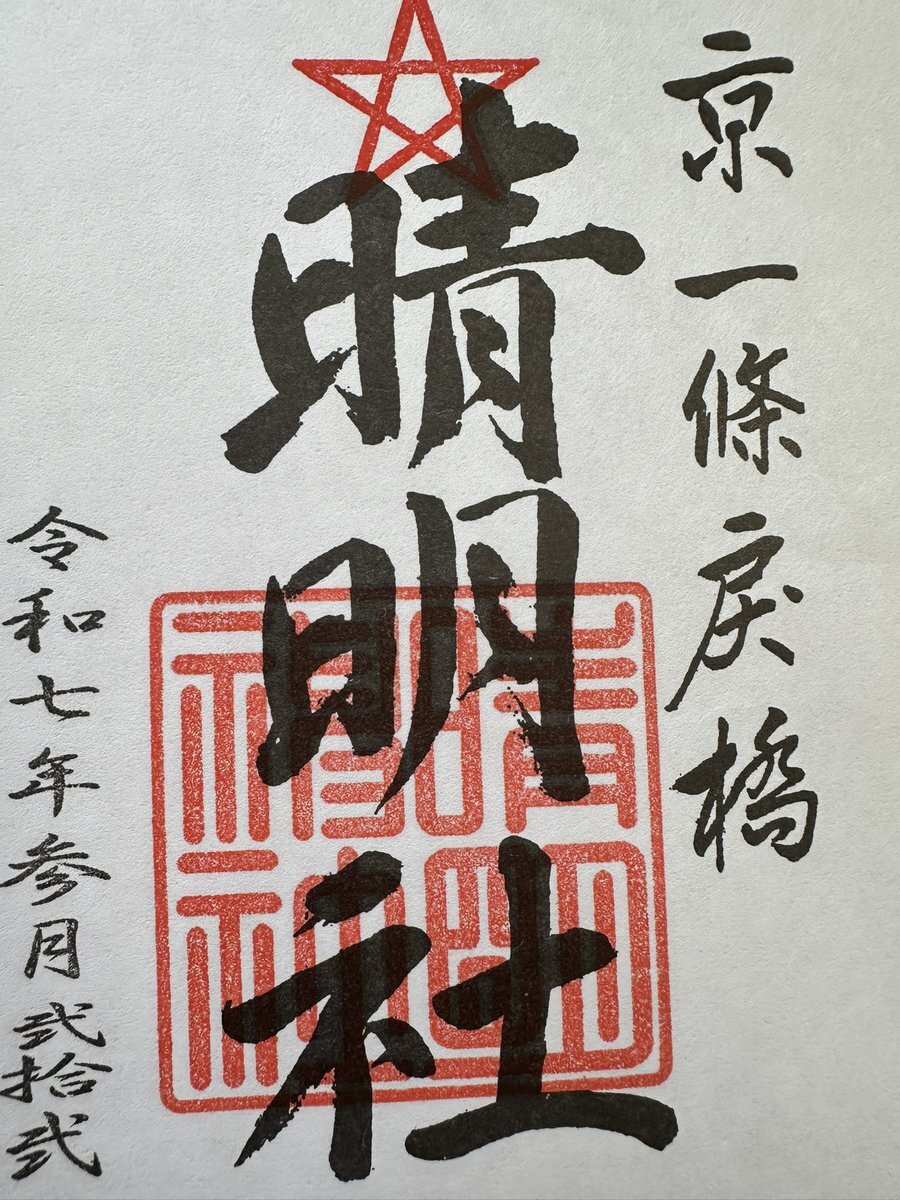 京一條戻橋
晴明社
令和七年参月弐拾弐